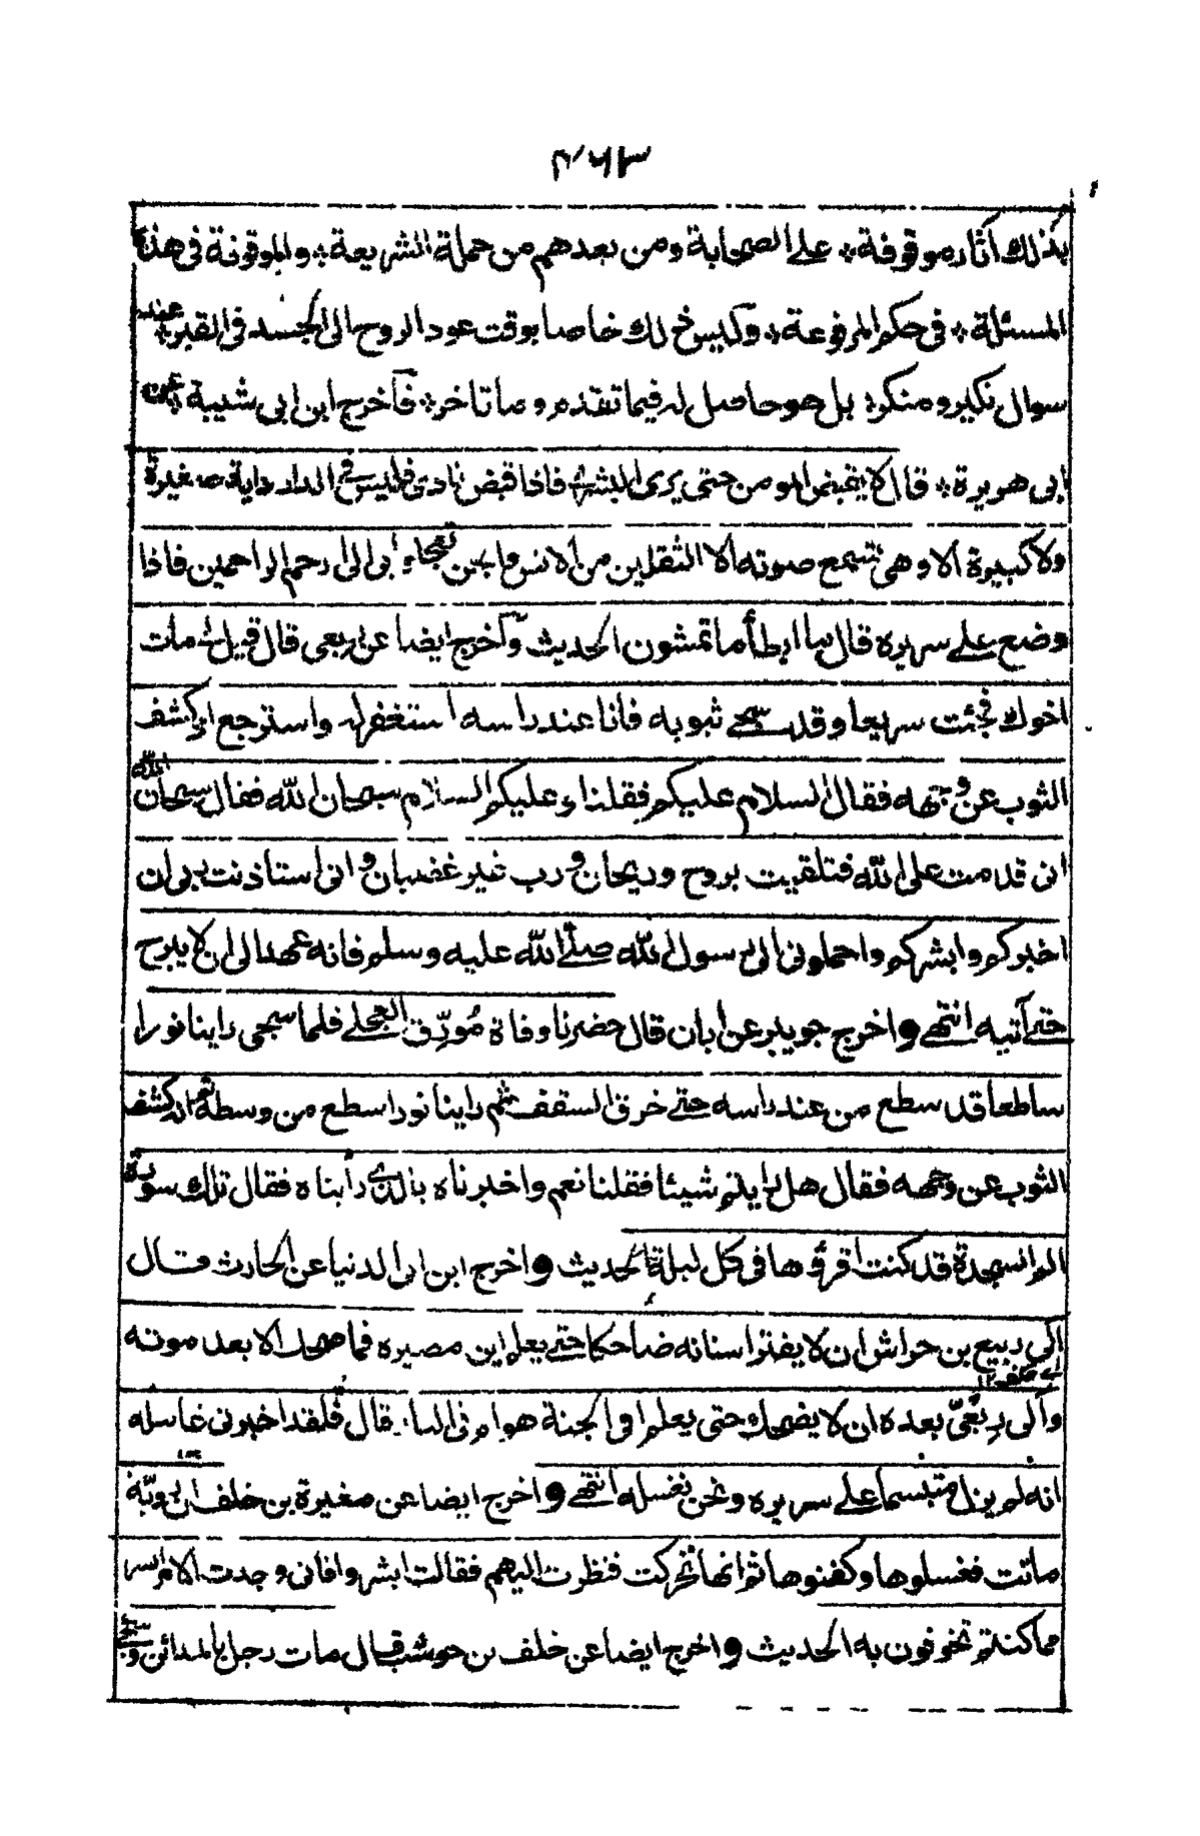 بذلك آثار موقوفة * على الصحابة ومن بعدهم من حملة الشريعة * والموقوفة فى هذه
المسئلة * فى حكم المرفوعة * وليس ذلك خاصا بوقت عود الروح الى الجسد فى القبر * عند
سوال نكير ومنكر * بل هو حاصل له فيما تقدم وما تاخر * فآخرج ابن ابى شيبة عن
ابى هريرة * قال لا يقبض المومن حتى يرى البشرى فاذا قبض نادى فليس فى الدار داية صغيرة
ولا كبيرة الا وهى تسمع صوته الا الثقلين من الانس والجن تعجلوا بى الى ارحم الراحمين فاذا
وضع على سريره قال ما ابطأ ما تمشون الحديث وآخرج ايضا عن ربعى قال قيل لى مات
اخوك فجئت سريعا وقد سجى ثبوبه فانا عند راسه استغفر له واسترجع اذ كشف
الثوب عن وجهه فقال السلام عليكم فقلنا وعليكم السلام سبحان الله فقال سبحان الله
انى قدمت على الله فتلقيت بروح وريحان ورب غير غضبان وانى استاذنت ربى ان
اخبركم وابشركم واحملونى الى رسول الله صلى الله عليه وسلم فانه عهد الى ان لا يبرح
حتى آتيه انتهى واخرج جويبر عن ابان قال حضرنا وفاة مُورِّق العجلى فلما سجى راينا نورا
ساطعا قد سطع من عند راسه حتى خرق السقف ثم راينا نورا سطع من وسطه ثم انه كشف
الثوب عن وجهه فقال هل رايتم شيئا فقلنا نعم واخبرناه بالذى رأيناه فقال تلك سورة
الم السجدة قد كنت اقرؤها فى كل ليلة الحديث واخرج ابن ابى الدنيا عن الحارث قال
الى ربيع بن حراش ان لا يفتر اسنانه ضاحكا حتى يعلم اين مصيره فما ضحك الا بعد موته
اى حلف ١٢
وآلى رِبعيّ بعده ان لا يضحك حتى يعلم افى الجنة هو ام فى النار قال فلقد اخبرنى غاسله
انه لم يزل متبسما على سريره ونحن نغسله انتهى واخرج ايضا عن مغيرة بن خلف ان روبّة
ماتت فغسلوها وكفنوها ثم انها تحركت فنظرت اليهم فقالت ابشروا فانى وجدت الامر ايسر
مما كنتم تخوفون به الحديث واخرج ايضا عن خلف بن حوشب قال مات رجل بالمدائن وسجى